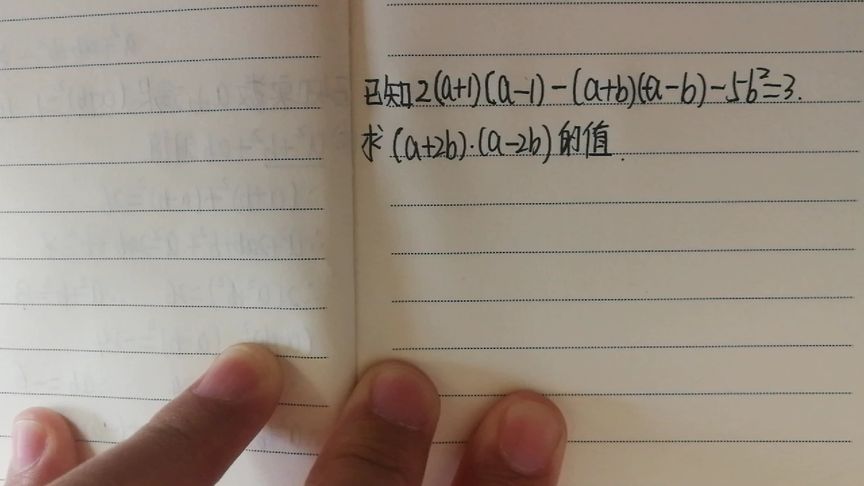 已知2(a+1)(a-1)-(a+b)(a-b)-5b²=3.
求(a+2b)·(a-2b)的值.